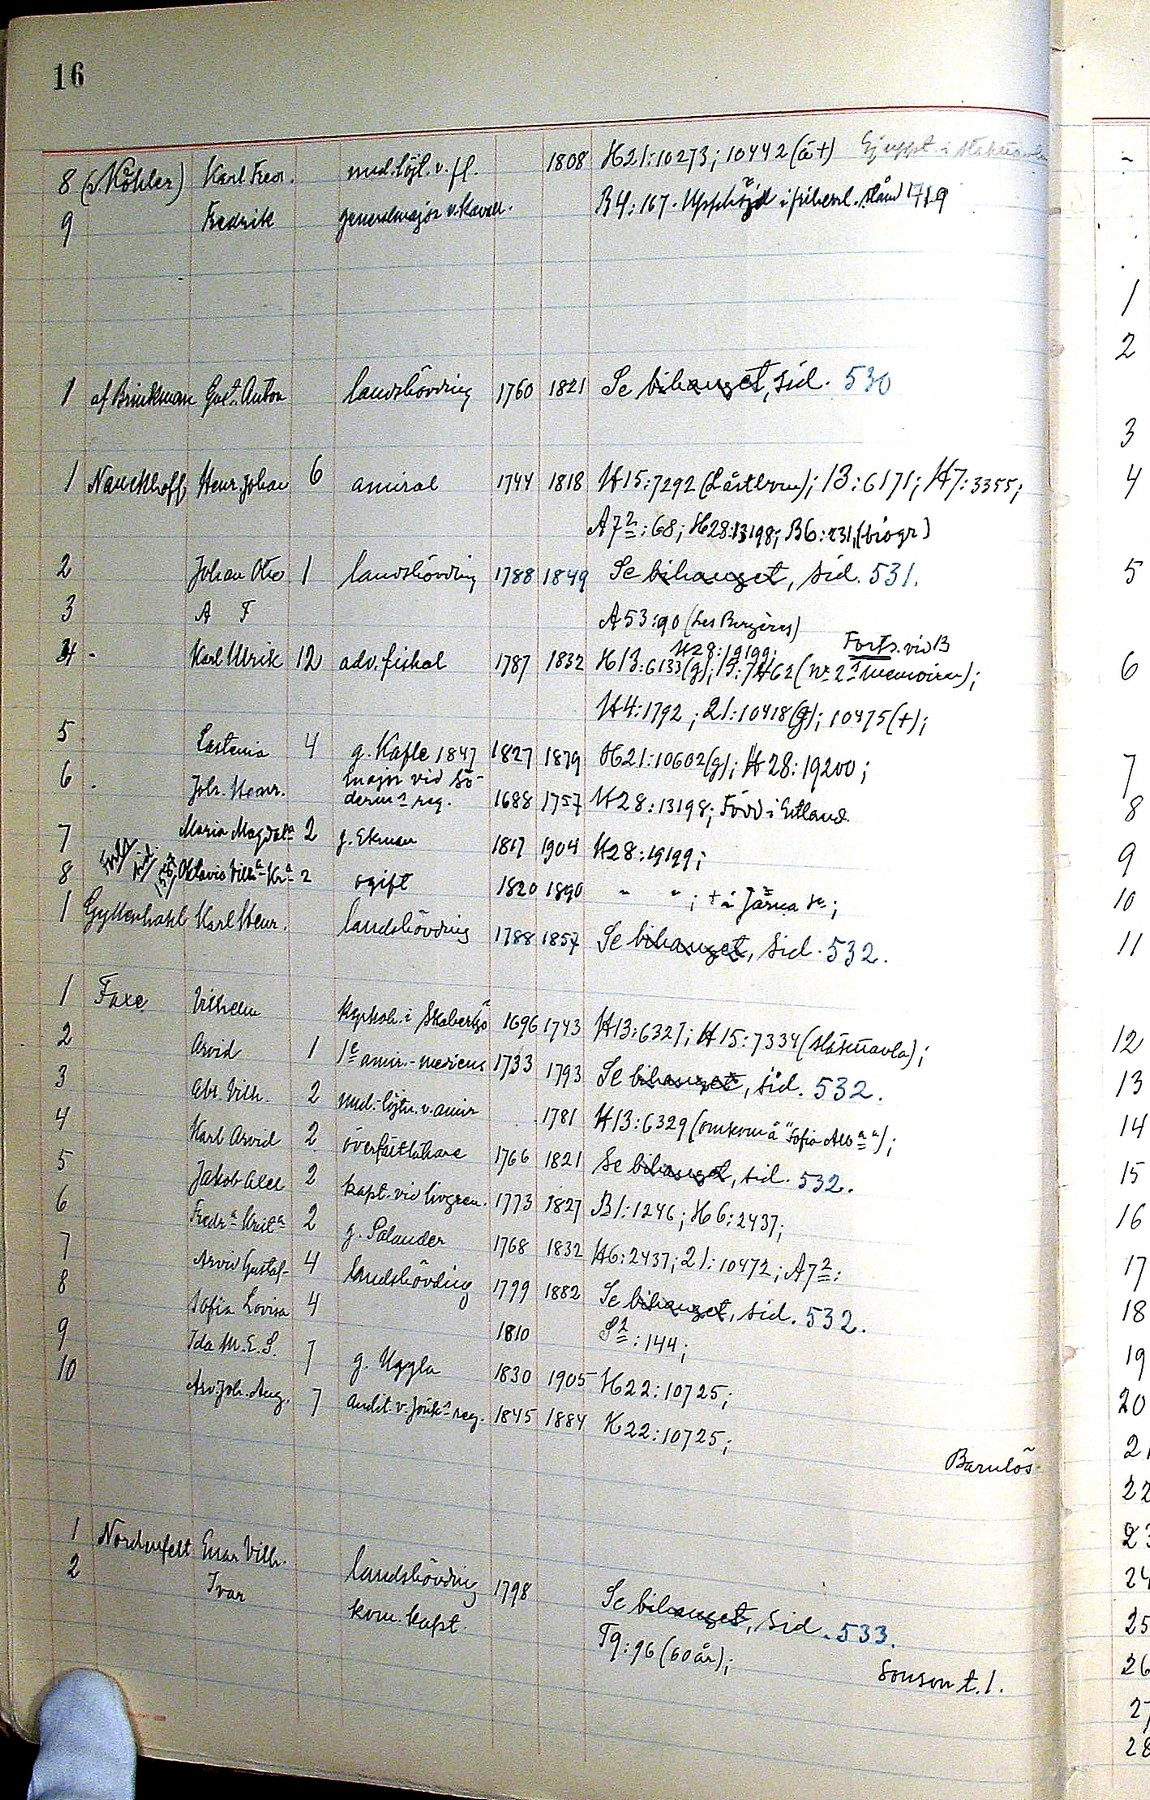 16
8 (v. Köhler) Karl Fredr. und.löjt. v. fl. 1808 H21:10273; 10442 (å +) Ej uppt. i
9 Fredrik generalmajor v. kavall. B4:167. Upphöjd i friherrl. stånd 1719
1 af Brinkman Gust. Anton landshövding 1760 1821 Se bihanget, sid. 530
1 Nauckhoff Henr. Johan 6 amiral 1744 1818 H15:7292 ; 13:6171; H7:3355;
A7 2: 68; H28:13198; B6:231, (biogr)
2 Johan Otto 1 landshövding 1788 1849 Se bihanget, sid. 531.
3 A F A53:90 (Les Bergères)
H28:19199; Forts. vid 13
4 - Karl Ulrik 12 adv. fiskal 1787 1832 H13:6133(g); 15:7462 (Nr 21 memoiren);
H4:1792; 21:10418(g); 10475(+);
5 4 g. Kafle 1847 1827 1879 H21:10602(g); H28:19200;
6 . Joh. Henr. major vid Sö-
derm. reg. 1688 1757 H28:13198; Född i Estland
7 Maria Magdal:a 2 g. Ekman 1817 1904 H28:19199;
8 Oktavia Vilh:a Kr:a 2 ogift 1820 1890 " " ; + i Järna sn;
1 Gyllenhaal Karl Henr. landshövding 1788 1857 Se bihanget, sid. 532.
1 Faxe Vilhelm kyrkoh. i Skabersjö 1696 1743 H13:6327; H15:7334 (släkttavla);
2 Arvid 1 1e amir.-medicus 1733 1793 Se bihanget, sid. 532.
3 Abr. Vilh. 2 und.-löjtn. v. amir 1781 H13:6329 (omkom å "Sofia Alb:a");
4 Karl Arvid 2 överfältläkare 1766 1821 Se bihanget, sid. 532.
5 Jakob Axel 2 kapt. vid livgren. 1773 1827 B1:1246; H6:2437;
6 Fredr:a Krist:a 2 g. Salander 1768 1832 H6:2437; 21:10472; A7 2:
7 Arvid Gustaf 4 landshövding 1799 1882 Se bihanget, sid. 532.
8 Sofia Lovisa 4 1810 S2:144;
9 Ida M. E. S. 7 g. Uggla 1830 1905 H22:10725;
10 Arv. Joh. Aug. 7 audit. v. Jönk. reg. 1845 1884 H22:10725;
Barnlös
1 Nordenfelt Enar Vilh. landshövding 1798 Se bihanget, sid. 533.
2 Ivar kom. kapt. T9:96 (60 år);
Sonson t. 1.
1
2
3
4
5
6
7
8
9
10
11
12
13
14
15
16
17
18
19
20
21
22
23
24
25
26
27
28